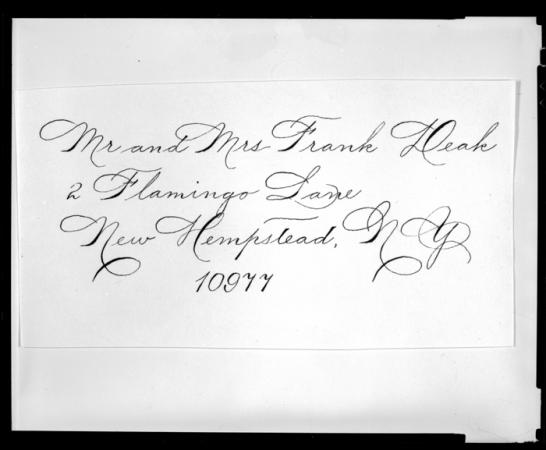 Mr and Mrs Frank Deak
2 Flamingo Lane
New Hempstead, NY
10977